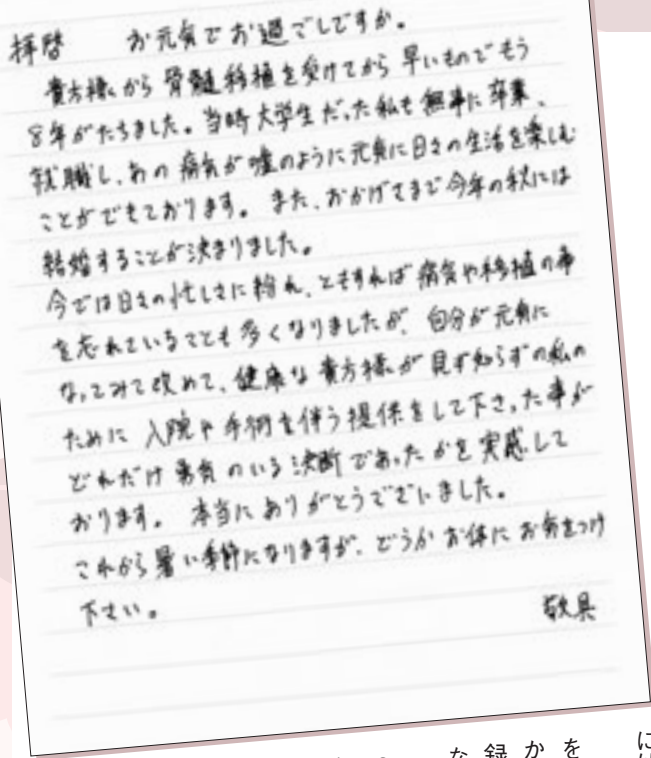 拝啓　お元気でお過ごしですか。
貴方様から骨髄移植を受けてから早いものでもう
8年がたちました。当時大学生だった私も無事に卒業、
就職し、あの病気が嘘のように元気に日々の生活を楽しむ
ことができております。また、おかげさまで今年の秋には
結婚することが決まりました。
今では日々の忙しさに紛れ、ともすれば病気や移植の事
を忘れていることも多くなりましたが、自分が元気に
なってみて改めて、健康な貴方様が見ず知らずの私の
ために入院や手術を伴う提供をして下さった事が
どれだけ勇気のいる決断であったかを実感して
おります。本当にありがとうございました。
これから暑い季節になりますが、どうかお体にお気をつけ
下さい。
敬具
に
を
か
録
な